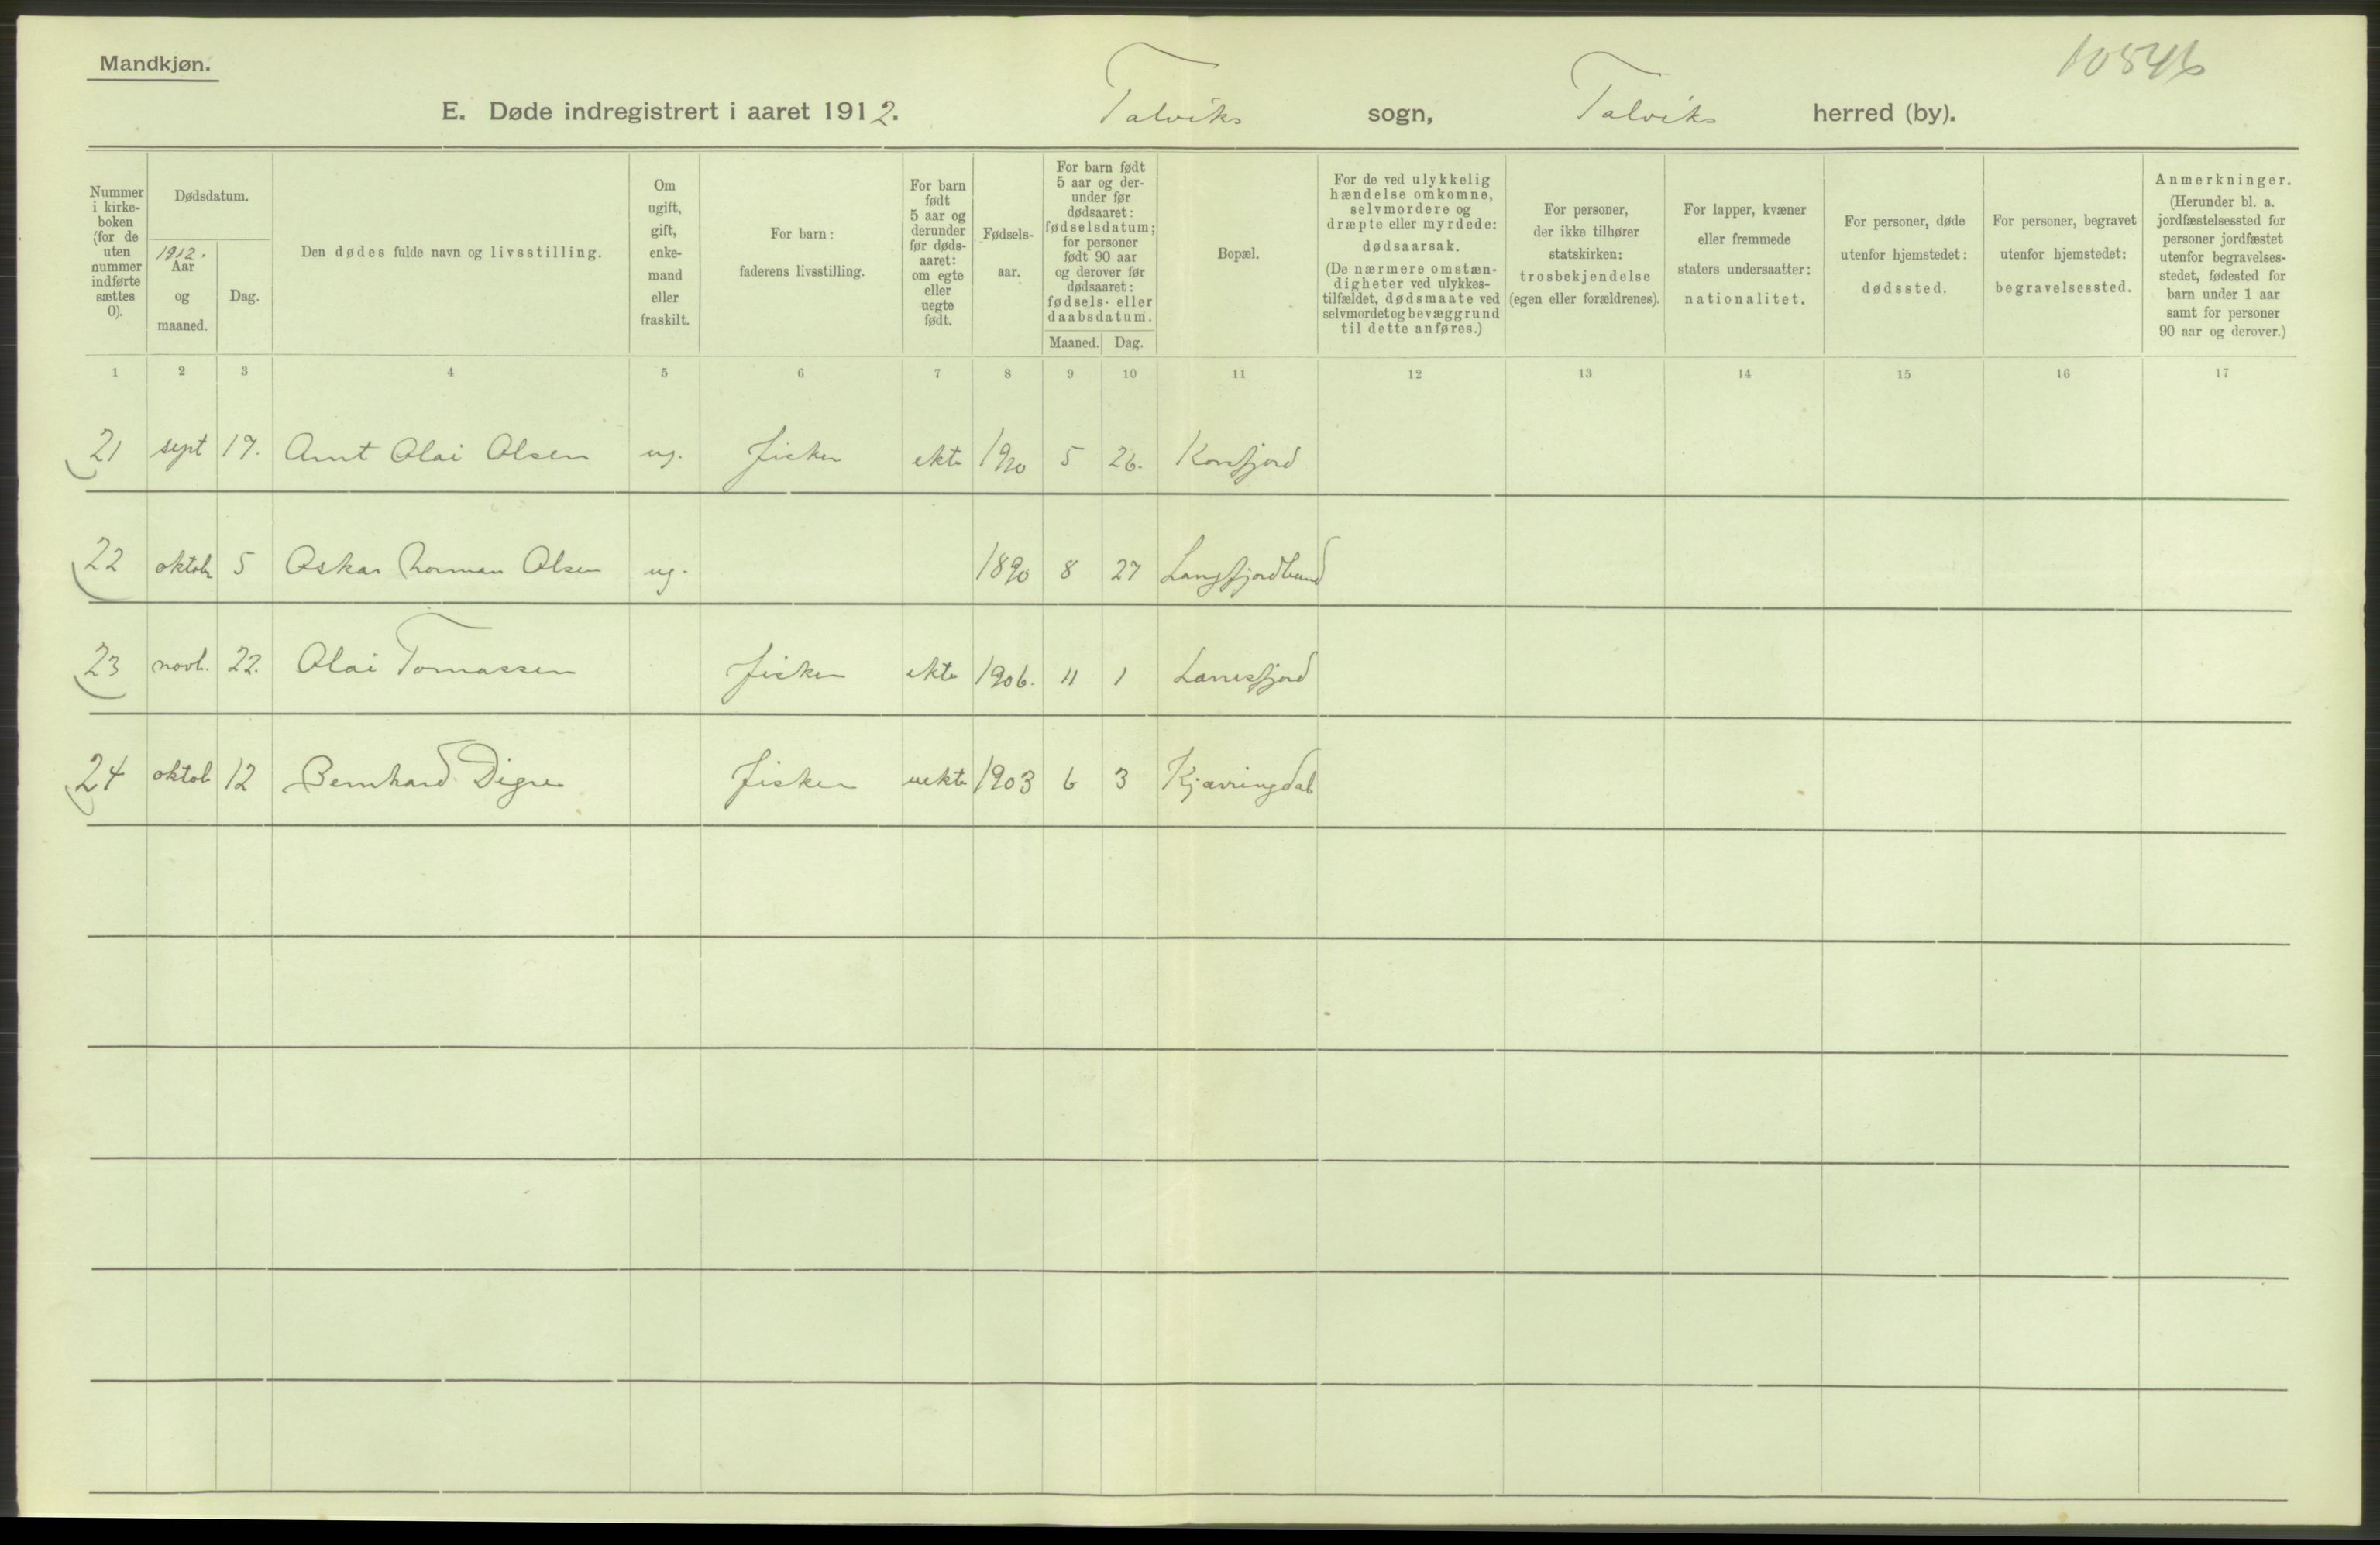 Mandkjøn.
10546
E. Døde indregistrert i aaret 1912. Talviks sogn, Talviks herred (by).
Nummer i kirke- boken (for de uten nummer indførte sættes 0).
Dødsdatum.
1912.
Aar og maaned.
Dag.
Den dødes fulde navn og livsstilling.
Om ugift, gift, enke- mand eller fraskilt.
For barn: faderens livsstilling.
For barn født 5 aar og derunder før døds- aaret: om egte eller uegte født.
Fødsels- aar.
For barn født 5 aar og der- under før dødsaaret: fødselsdatum; for personer født 90 aar og derover før dødsaaret: fødsels- eller daabsdatum.
Maaned. Dag.
Bopæl.
For de ved ulykkelig hændelse omkomne, selvmordere og dræpte eller myrdede: dødsaarsak. (De nærmere omstæn- digheter ved ulykkes- tilfældet, dødsmaate ved selvmordet og bevæggrund til dette anføres.)
For personer, der ikke tilhører statskirken: trosbekjendelse (egen eller forældrenes).
For lapper, kvæner eller fremmede staters undersaatter: nationalitet.
For personer, døde utenfor hjemstedet: dødssted.
For personer, begravet utenfor hjemstedet: begravelsessted.
Anmerkninger. (Herunder bl. a. jordfæstelsessted for personer jordfæstet utenfor begravelses- stedet, fødested for barn under 1 aar samt for personer 90 aar og derover.)
1 2 3 4 5 6 7 8 9 10 11 12 13 14 15 16 17
21 sept 17. Arnt Olai Olsen ug. fisker ekte 5 26. Korsfjord
22 oktob 5 Oskar Norman Olsen ug. 1890 8 27 Langfjordbund
23 novb. 22. Olai Tomassen fisker ekte 1906. 11 1 Lanesfjord
24 oktob 12 Bernhard Digre fisker uekte 1903 6 3 Kjærringdal